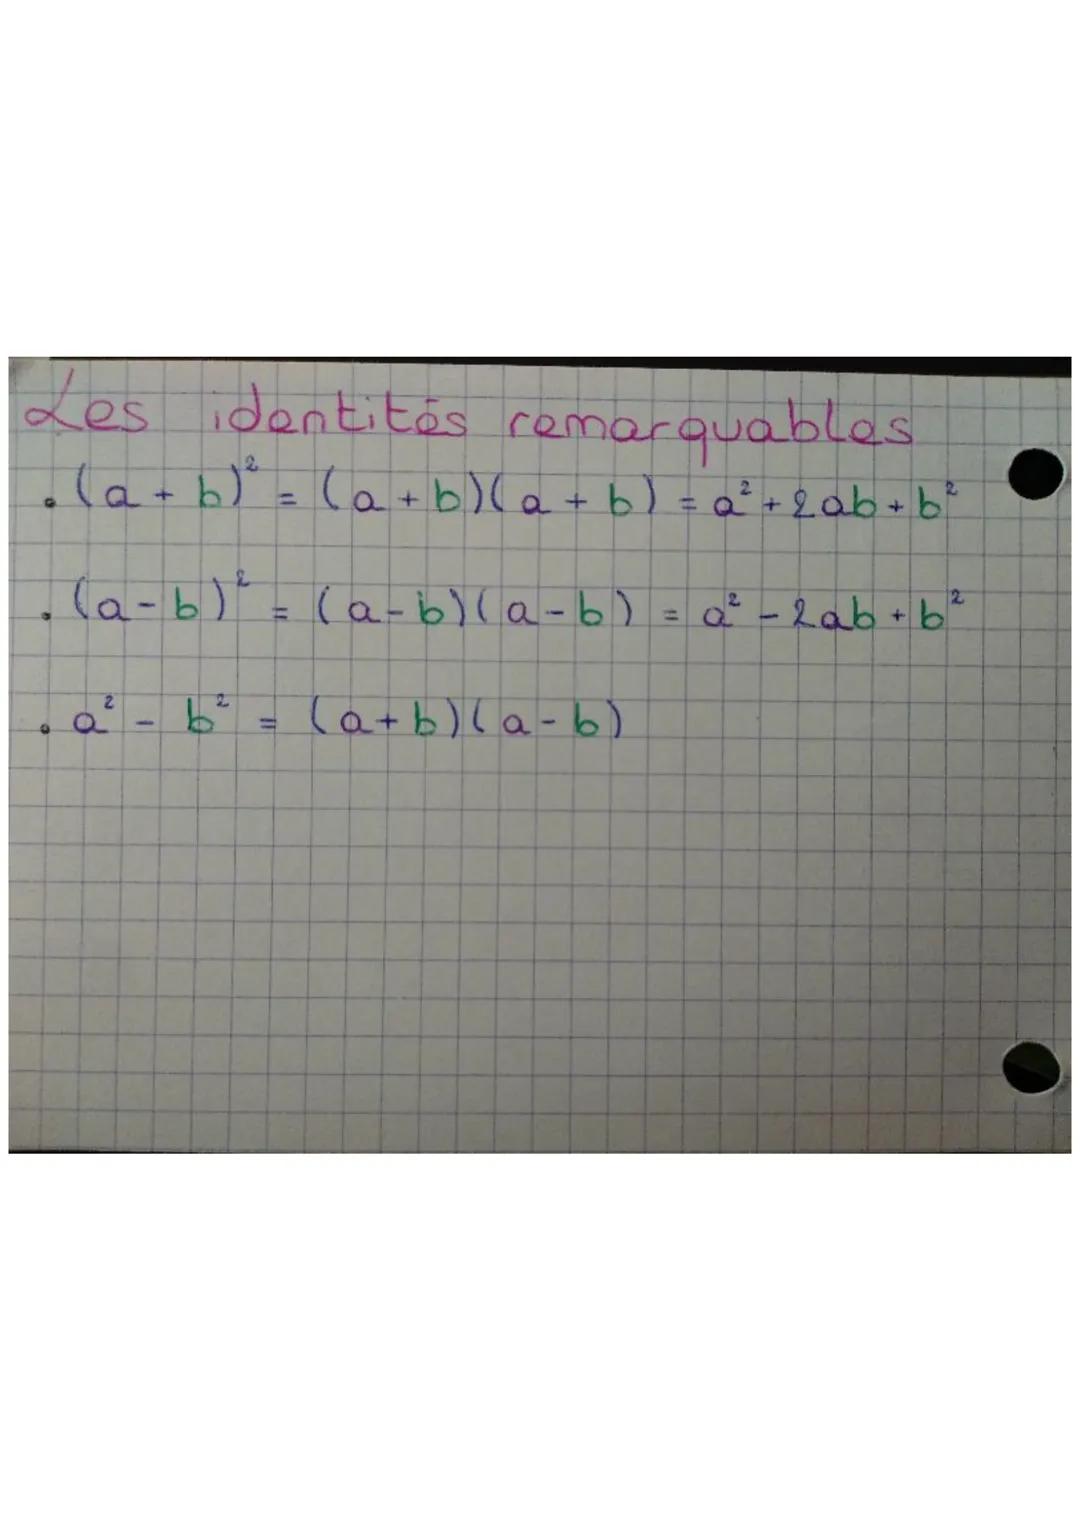 Les identités remarquables
• (a + b)² = (a + b)(a + b) = a² + 2ab + b²
• (a - b)² = (a - b)(a - b) = a² - 2ab + b²
• a² - b² = (a + b)(a - b)